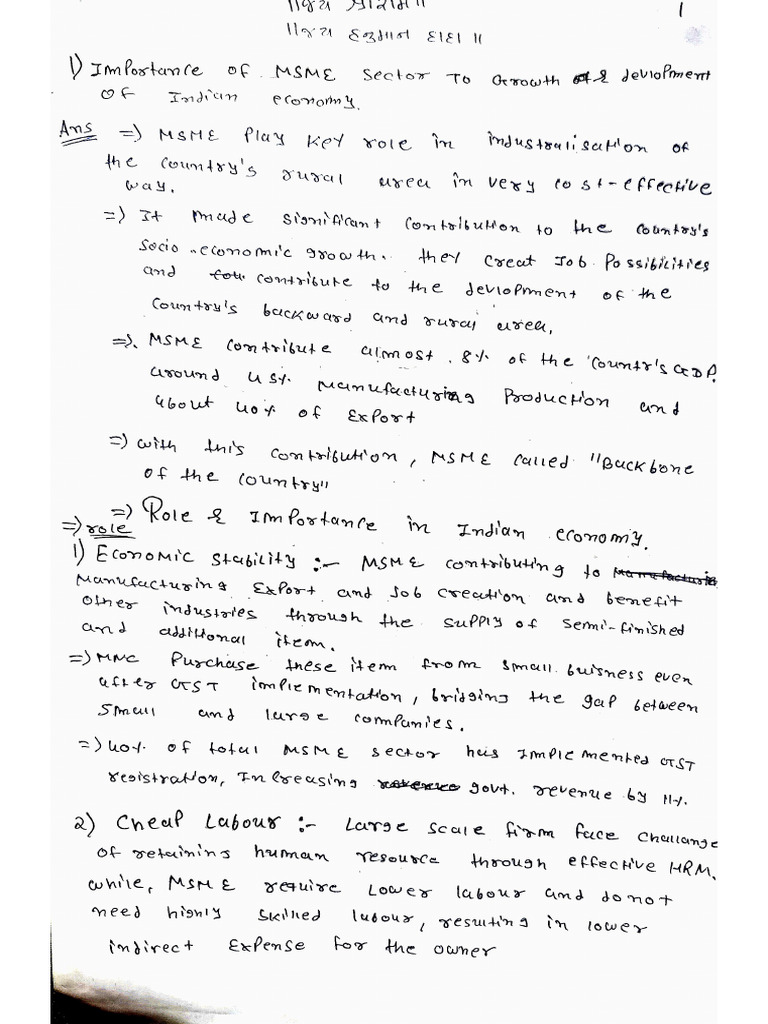 ॥જય શ્રીરામ॥
1
॥જય હનુમાન દાદા॥
1) Importance of MSME sector to Growth & devlopment
of Indian economy.
Ans => MSME Play key role in industralisation of
the country's rural urea in very cost-effective
way.
=> It made significant contribution to the country's
socio-economic growth. they creat Job Possibilities
and contribute to the devlopment of the
country's backward and rural urea,
=>. MSME contribute almost 8% of the countr's GDP.
around 45% manufacturing Production and
about 40% of Export
=> with this contribution, MSME called "Backbone
of the country"
=> Role & Importance in Indian economy.
=> role
1) Economic stability :- MSME contributing to
manufacturing Export and Job creation and benefit
other industries through the supply of semi-finished
and additional item.
=> MNC Purchase these item from small buisness even
after GST implementation, bridging the gap between
small and large companies.
=> 40% of total MSME sector has implemented GST
registration, Increasing govt. revenue by 11%.
2) Cheap Labour :- Large scale firm face challange
of retaining human resource through effective HRM.
while, MSME require Lower labour and do not
need highly skilled labour, resulting in lower
indirect Expense for the owner